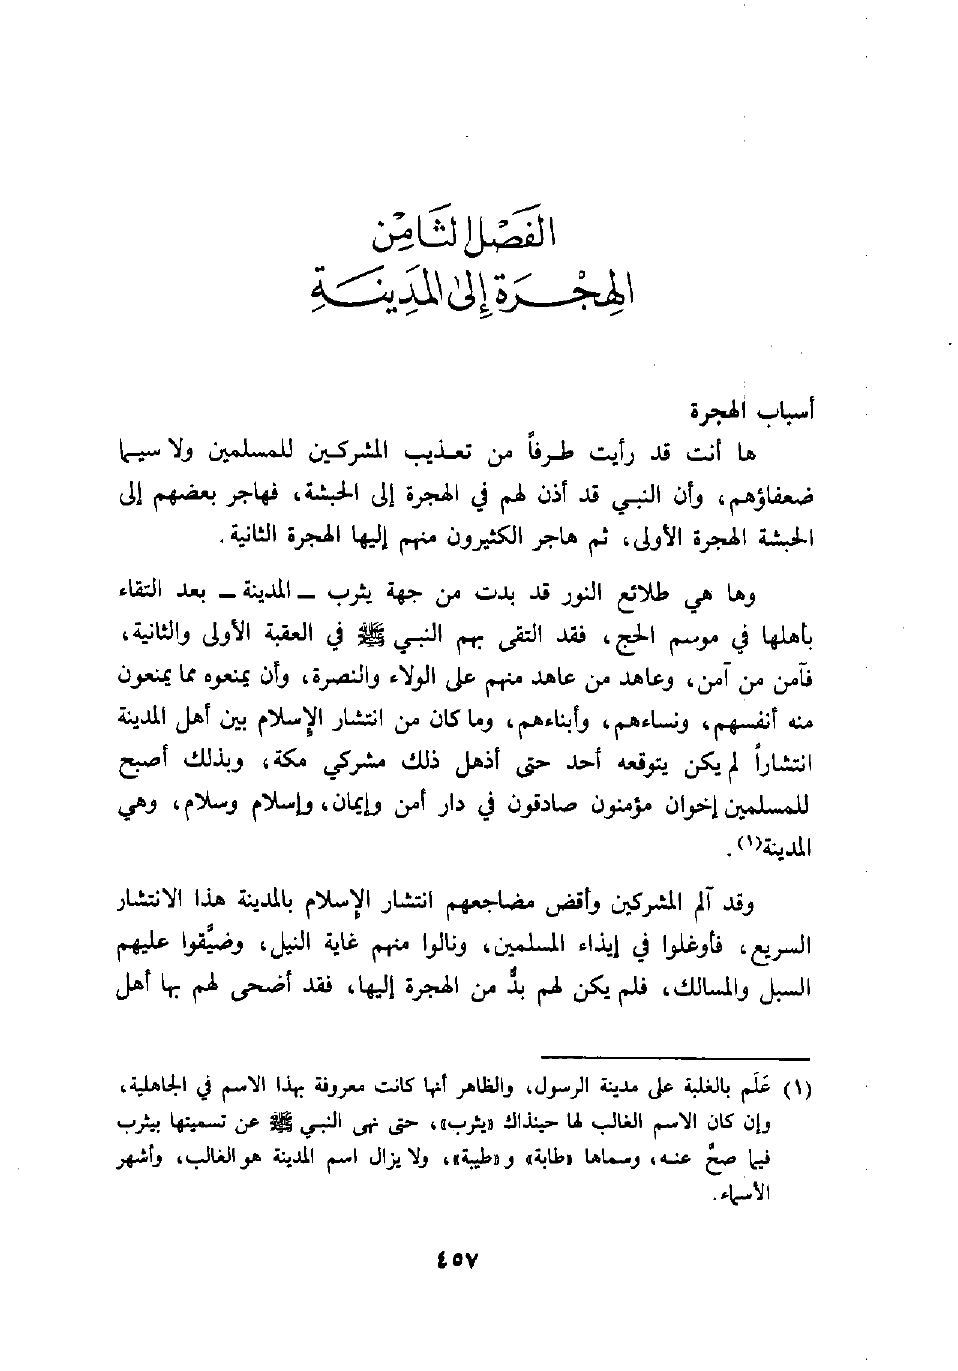 الفَصْل الثَّامِن
الهِجْرَة إلى المَدِينَةِ
أسباب الهجرة
ها أنت قد رأيت طرفاً من تعذيب المشركين للمسلمين ولا سيما
ضعفاؤهم، وأن النبي قد أذن لهم في الهجرة إلى الحبشة، فهاجر بعضهم إلى
الحبشة الهجرة الأولى، ثم هاجر الكثيرون منهم إليها الهجرة الثانية.
وها هي طلائع النور قد بدت من جهة يثرب ــ المدينة ــ بعد التقاء
بأهلها في موسم الحج، فقد التقى بهم النبي ﷺ في العقبة الأولى والثانية،
فآمن من آمن، وعاهد من عاهد منهم على الولاء والنصرة، وأن يمنعوه مما يمنعون
منه أنفسهم، ونساءهم، وأبناءهم، وما كان من انتشار الإسلام بين أهل المدينة
انتشاراً لم يكن يتوقعه أحد حتى أذهل ذلك مشركي مكة، وبذلك أصبح
للمسلمين إخوان مؤمنون صادقون في دار أمن وإيمان، وإسلام وسلام، وهي
المدينة(١).
وقد آلم المشركين وأقض مضاجعهم انتشار الإسلام بالمدينة هذا الانتشار
السريع، فأوغلوا في إيذاء المسلمين، ونالوا منهم غاية النيل، وضيَّقوا عليهم
السبل والمسالك، فلم يكن لهم بدٌّ من الهجرة إليها، فقد أضحى لهم بها أهل
(١) عَلَم بالغلبة على مدينة الرسول، والظاهر أنها كانت معروفة بهذا الاسم في الجاهلية،
وإن كان الاسم الغالب لها حينذاك «يثرب»، حتى نهى النبي ﷺ عن تسميتها بيثرب
فيما صحَّ عنه، وسماها «طابة» و«طيبة»، ولا يزال اسم المدينة هو الغالب، وأشهر
الأسماء.
٤٥٧